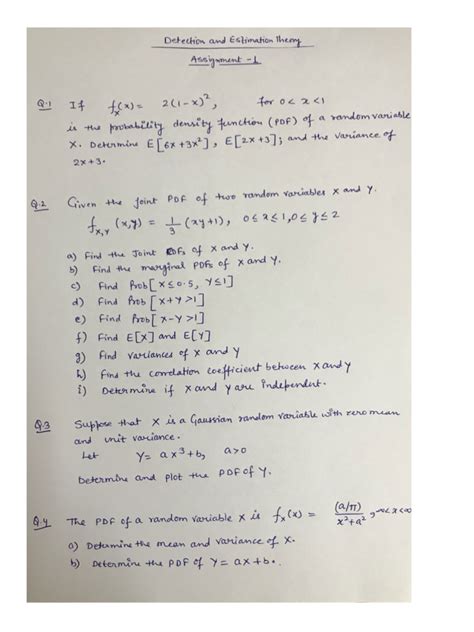 Detection and Estimation Theory
Assignment - 1
Q.1 If f_X(x) = 2(1-x)², for 0 < x < 1
is the probability density function (PDF) of a random variable
X. Determine E[6X + 3X²], E[2X + 3]; and the variance of
2X + 3.
Q.2 Given the joint PDF of two random variables X and Y.
f_{X,Y}(x,y) = 1/3 (xy+1), 0 ≤ x ≤ 1, 0 ≤ y ≤ 2
a) Find the Joint CDFs of X and Y.
b) Find the marginal PDFs of X and Y.
c) Find Prob[X ≤ 0.5, Y ≤ 1]
d) Find Prob[X+Y > 1]
e) Find Prob[X-Y > 1]
f) Find E[X] and E[Y]
g) Find variances of X and Y
h) Find the correlation coefficient between X and Y
i) Determine if X and Y are independent.
Q.3 Suppose that X is a Gaussian random variable with zero mean
and unit variance.
Let Y = aX³ + b, a > 0
Determine and plot the PDF of Y.
Q.4 The PDF of a random variable X is f_X(x) = (a/π) / (x² + a²), -∞ < x < ∞
a) Determine the mean and variance of X.
b) Determine the PDF of Y = aX + b.